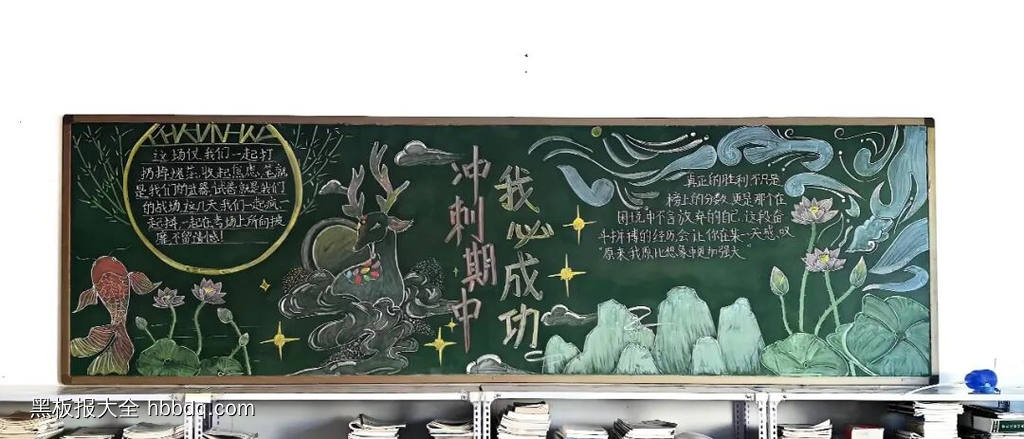 这场仗,我们一起打
扔掉娱乐,收起焦虑,笔就
是我们的武器,试卷就是我们
的战场,这几天,我们一起疯一
起拼,一起在考场上所向披
靡,不留遗憾!
冲刺期中
我必成功
真正的胜利,不只是
榜上的分数,更是那个在
困境中不言放弃的自己,这段奋
斗拼搏的经历会让你在某一天感叹
原来我原比想象中更加强大
黑板报大全 hbbdq.com